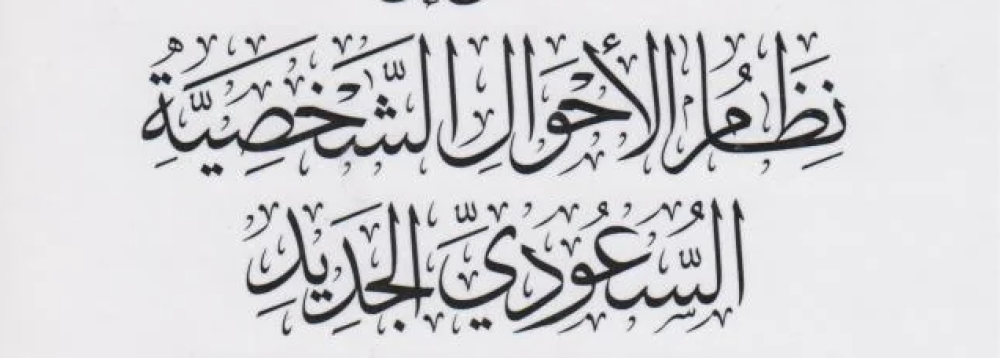 نِظَامُ الأَحْوَالِ الشَّخْصِيَّةِ
السُّعُودِيِّ الجَدِيدِ